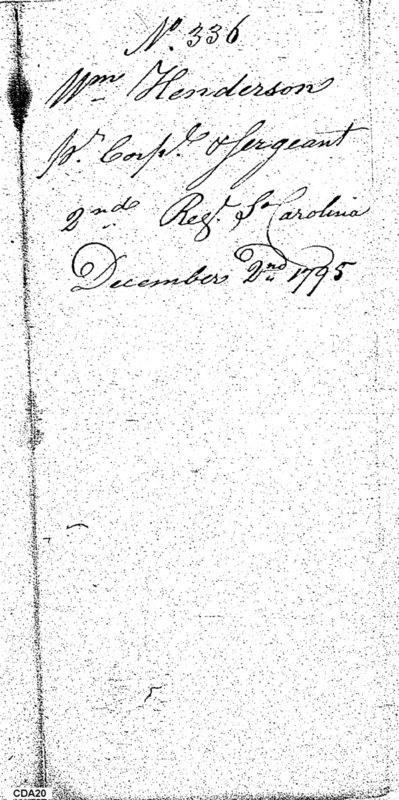 No. 336
Wm Henderson
Pt. Corpl. & Sergeant
2nd Regt. So Carolina
December 2nd 1795
CDA20